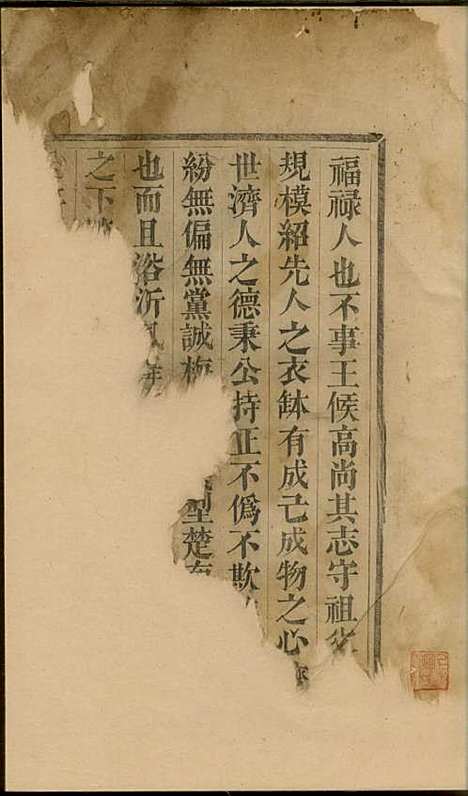 福祿人也不事王候高尚其志守祖
規模紹先人之衣鉢有成己成物之心
世濟人之德秉公持正不僞不欺
紛無偏無黨誠 型楚
也而且浴沂風
之下